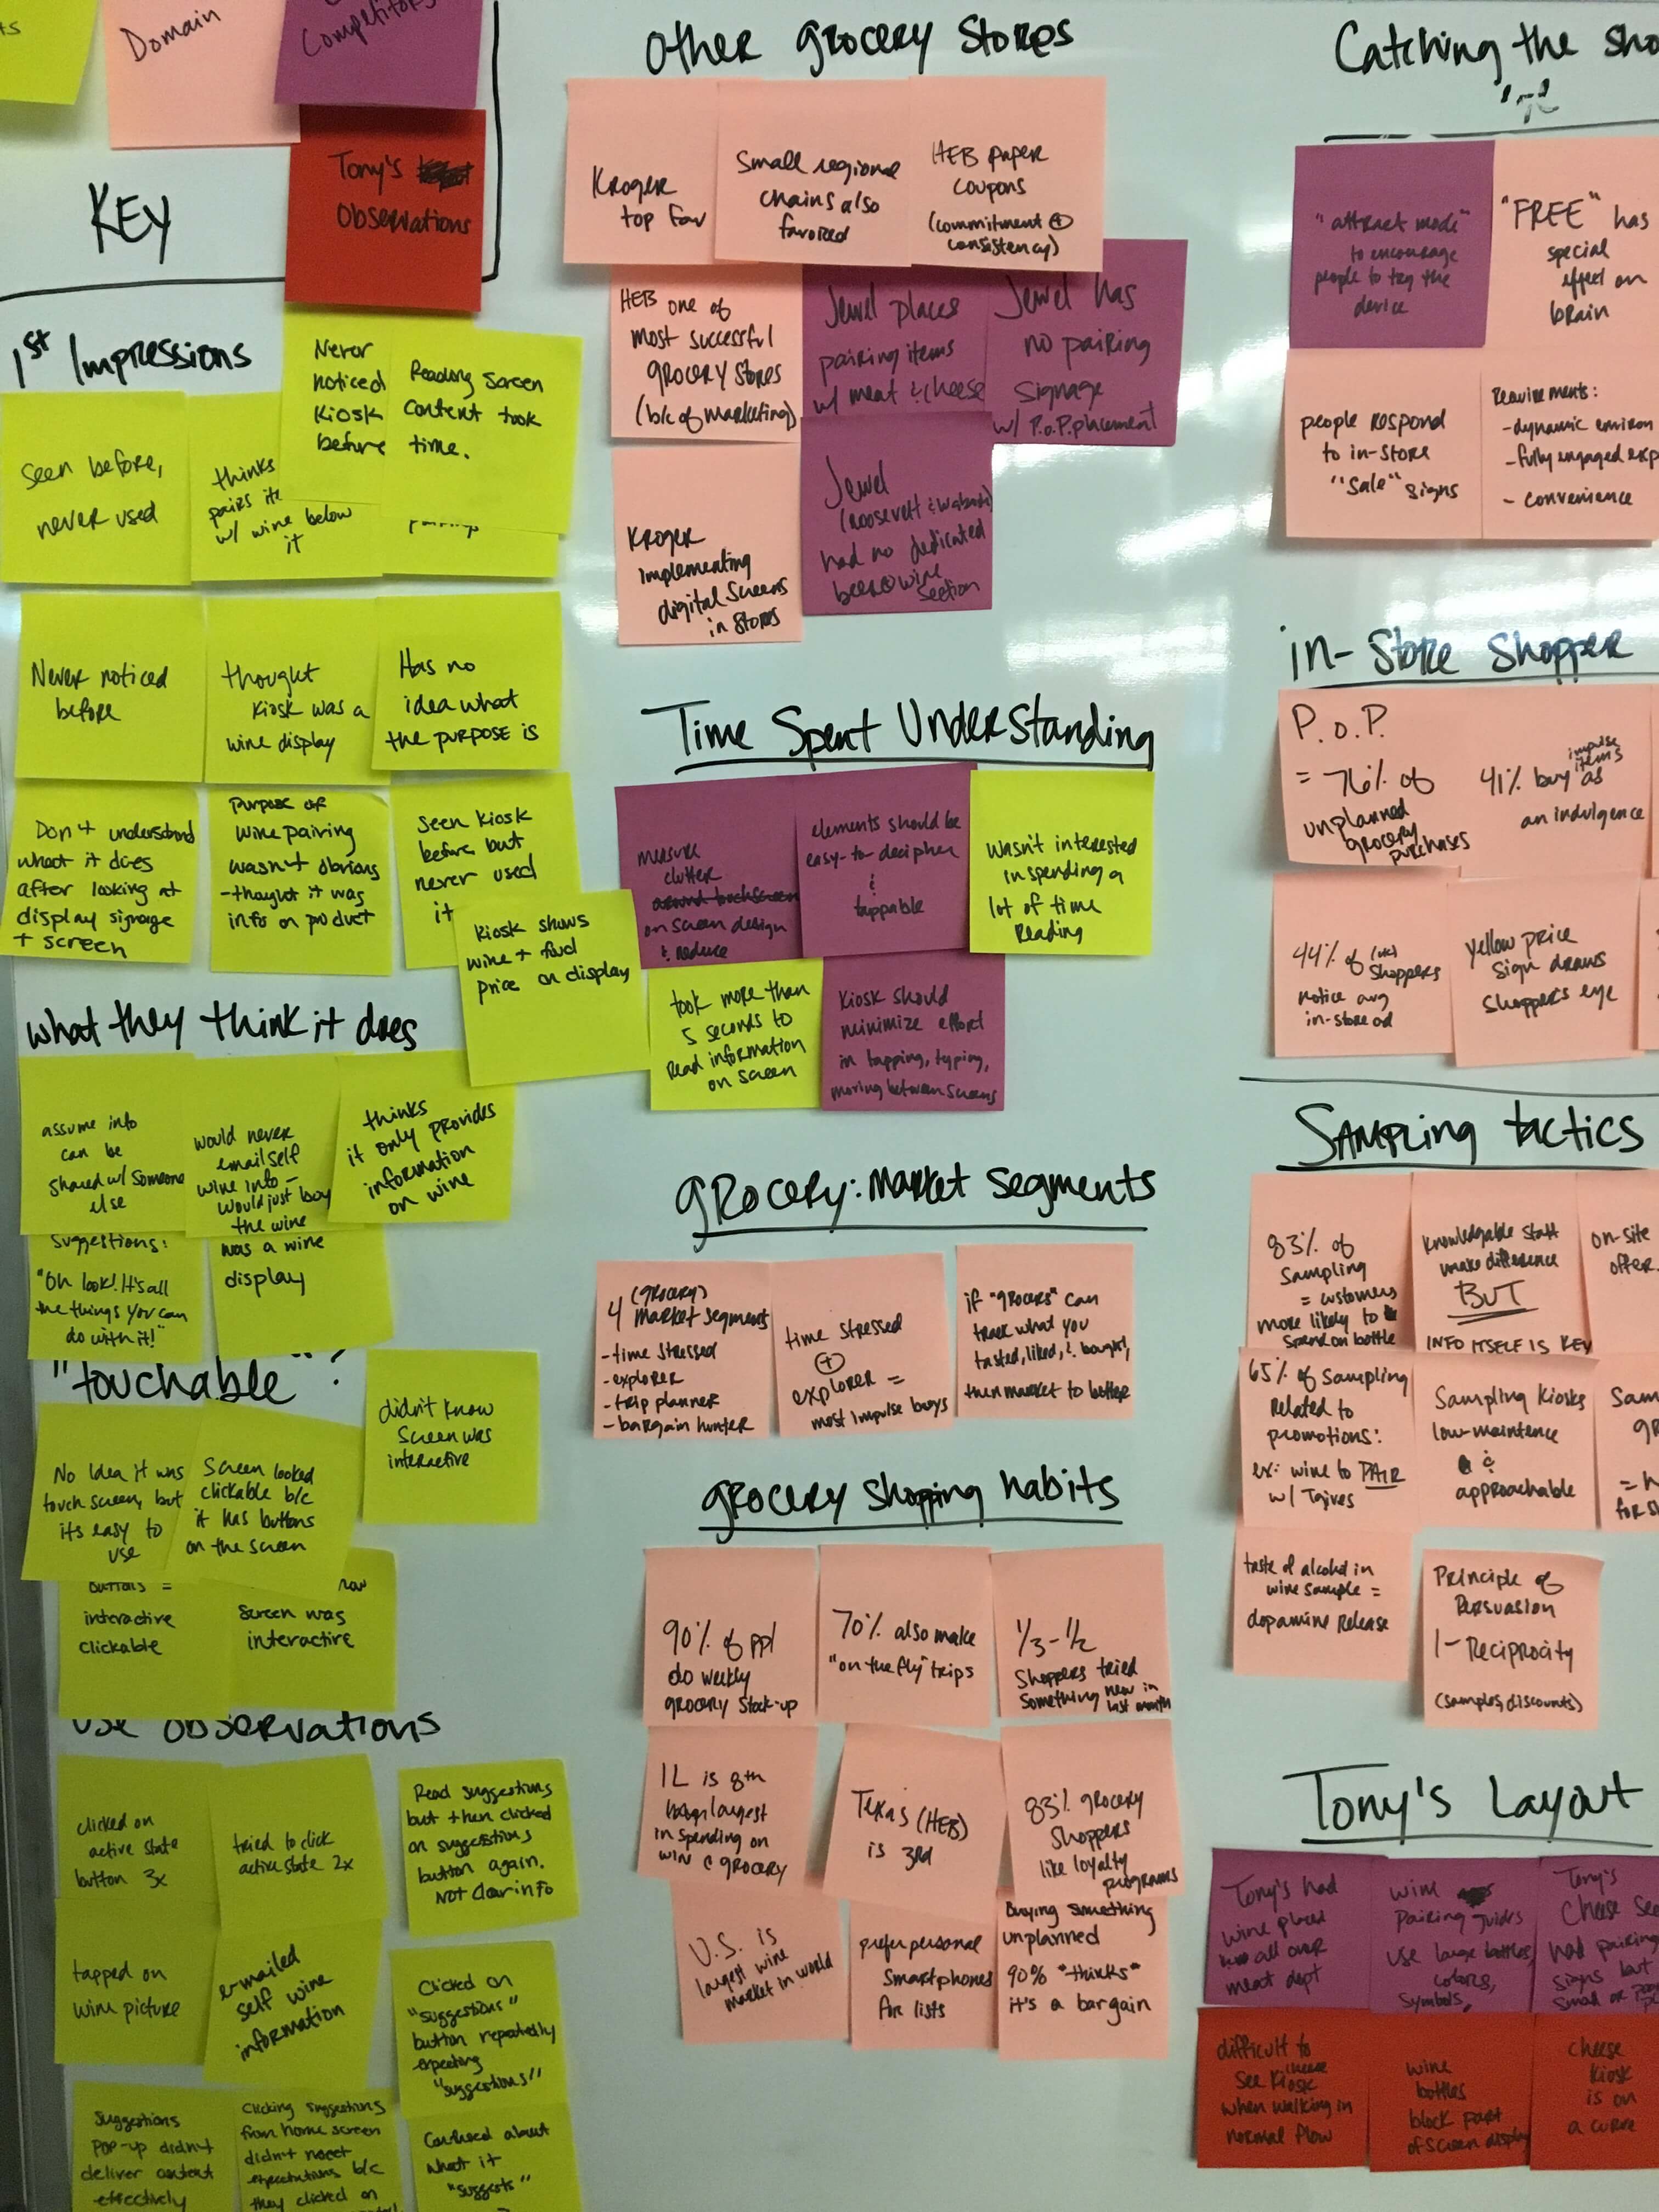 ts
Domain
Competitors
KEY
Tony's
Observations
1st Impressions
Seen before,
never used
thinks
pairs
w/ wine below
it
Never
noticed
Kiosk
before
Reading screen
content took
time.
Never noticed
before
thought
Kiosk was a
wine display
Has no
idea what
the purpose is
Don't understand
what it does
after looking at
display signage
+ screen
Purpose of
wine pairing
wasn't obvious
-thought it was
info on product
Seen Kiosk
before but
never used
it
Kiosk shows
wine + food
price on display
what they think it does
assume info
can be
shared w/ someone
else
would never
email self
wine info -
would just buy
the wine
thinks
it only provides
information
on wine
Suggestions:
"Oh look! It's all
the things you can
do with it!"
was a wine
display
"touchable" ?
didn't know
Screen was
interactive
No idea it was
touch screen, but
its easy to
use
Screen looked
clickable b/c
it has buttons
on the screen
buttons =
interactive
clickable
Screen was
interactive
Use Observations
clicked on
active state
button 3x
tried to click
active state 2x
Read suggestions
but then clicked
on suggestions
button again.
Not clear info
tapped on
wine picture
e-mailed
self wine
information
Clicked on
"suggestions"
button repeatedly
expecting
"suggestions"
Suggestions
POP-up didn't
deliver content
effectively
Clicking suggestions
from home screen
didn't meet
expectations b/c
they clicked on
Confused about
what it
"suggests"
Other Grocery Stores
Kroger
top fav
Small regional
chains also
favored
HEB paper
coupons
(commitment +
consistency)
HEB one of
most successful
grocery stores
(b/c of marketing)
Jewel places
pairing items
w/ meat & cheese
Jewel has
no pairing
signage
w/ P.O.P. placement
Kroger
implementing
digital screens
in stores
Jewel
(Roosevelt & Wabash)
had no dedicated
beer + wine
section
Time Spent Understanding
measure
clutter
around touchscreen
on screen design
& reduce
elements should be
easy-to decipher
&
tappable
Wasn't interested
in spending a
lot of time
Reading
took more than
5 seconds to
Read information
on screen
Kiosk should
minimize effort
in tapping, typing,
moving between screens
grocery: Market Segments
4 (grocery)
market segments
-time stressed
-explorer
-trip planner
-bargain hunter
time stressed
+
explorer =
most impulse buys
if "grocers" can
track what you
tasted, liked, & bought,
then market to better
grocery shopping habits
90% of ppl
do weekly
grocery stock-up
70% also make
"on the fly" trips
1/3-1/2
Shoppers tried
something new in
last month
IL is 8th
largest
in spending on
wine @ grocery
Texas (HEB)
is 3rd
83% grocery
shoppers
like loyalty
programs
U.S. is
largest wine
market in world
prefer personal
smartphones
for lists
Buying something
unplanned
90% "thinks"
it's a bargain
Catching the sho
"attract mode"
to encourage
people to try the
device
"FREE" has
special
effect on
brain
people respond
to in-store
"Sale" signs
Requirements:
-dynamic environ
-fully engaged exp
- convenience
in-store shopper
P.O.P.
= 76% of
unplanned
grocery
purchases
41% buy impulse
items as
an indulgence
44% of (UK)
shoppers
notice avg
in-store ad
yellow price
sign draws
shoppers eye
Sampling tactics
83% of
Sampling
= customers
more likely to
spend on bottle
Knowledgable staff
make difference
BUT
INFO ITSELF IS KEY
on-site
offer
65% of sampling
Related to
promotions:
ex: wine to PAIR
w/ Tgives
Sampling Kiosks
low-maintence
&
approachable
Sam
for S
taste of alcohol in
wine sample =
dopamine release
Principle of
Persuasion
1- Reciprocity
(samples, discounts)
Tony's Layout
Tony's had
wine placed
all over
meat dept
wine
Pairing guides
use large bottles,
colors,
symbols,
Tony's
Cheese Sec
had pairing
signs but
small or
difficult to
see cheese Kiosk
when walking in
normal flow
wine
bottles
block part
of screen display
cheese
Kiosk
is on
a curve